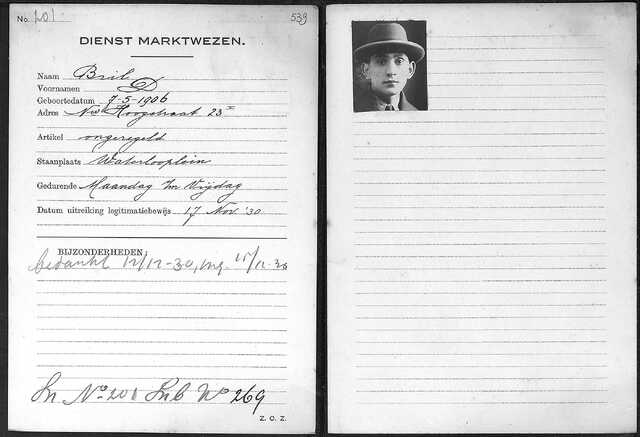 No. 201 539
DIENST MARKTWEZEN.
Naam Bril
Voornamen D
Geboortedatum 7-5-1906
Adres Nwe Hoogstraat 23 I
Artikel ongeregeld
Staanplaats Waterlooplein
Gedurende Maandag t/m Vrijdag
Datum uitreiking legitimatiebewijs 17 Nov. '30
BIJZONDERHEDEN
bedankt 12/12-30, ing. 15/12-30
Ln No 200 Lnb No 269
Z. O. Z.